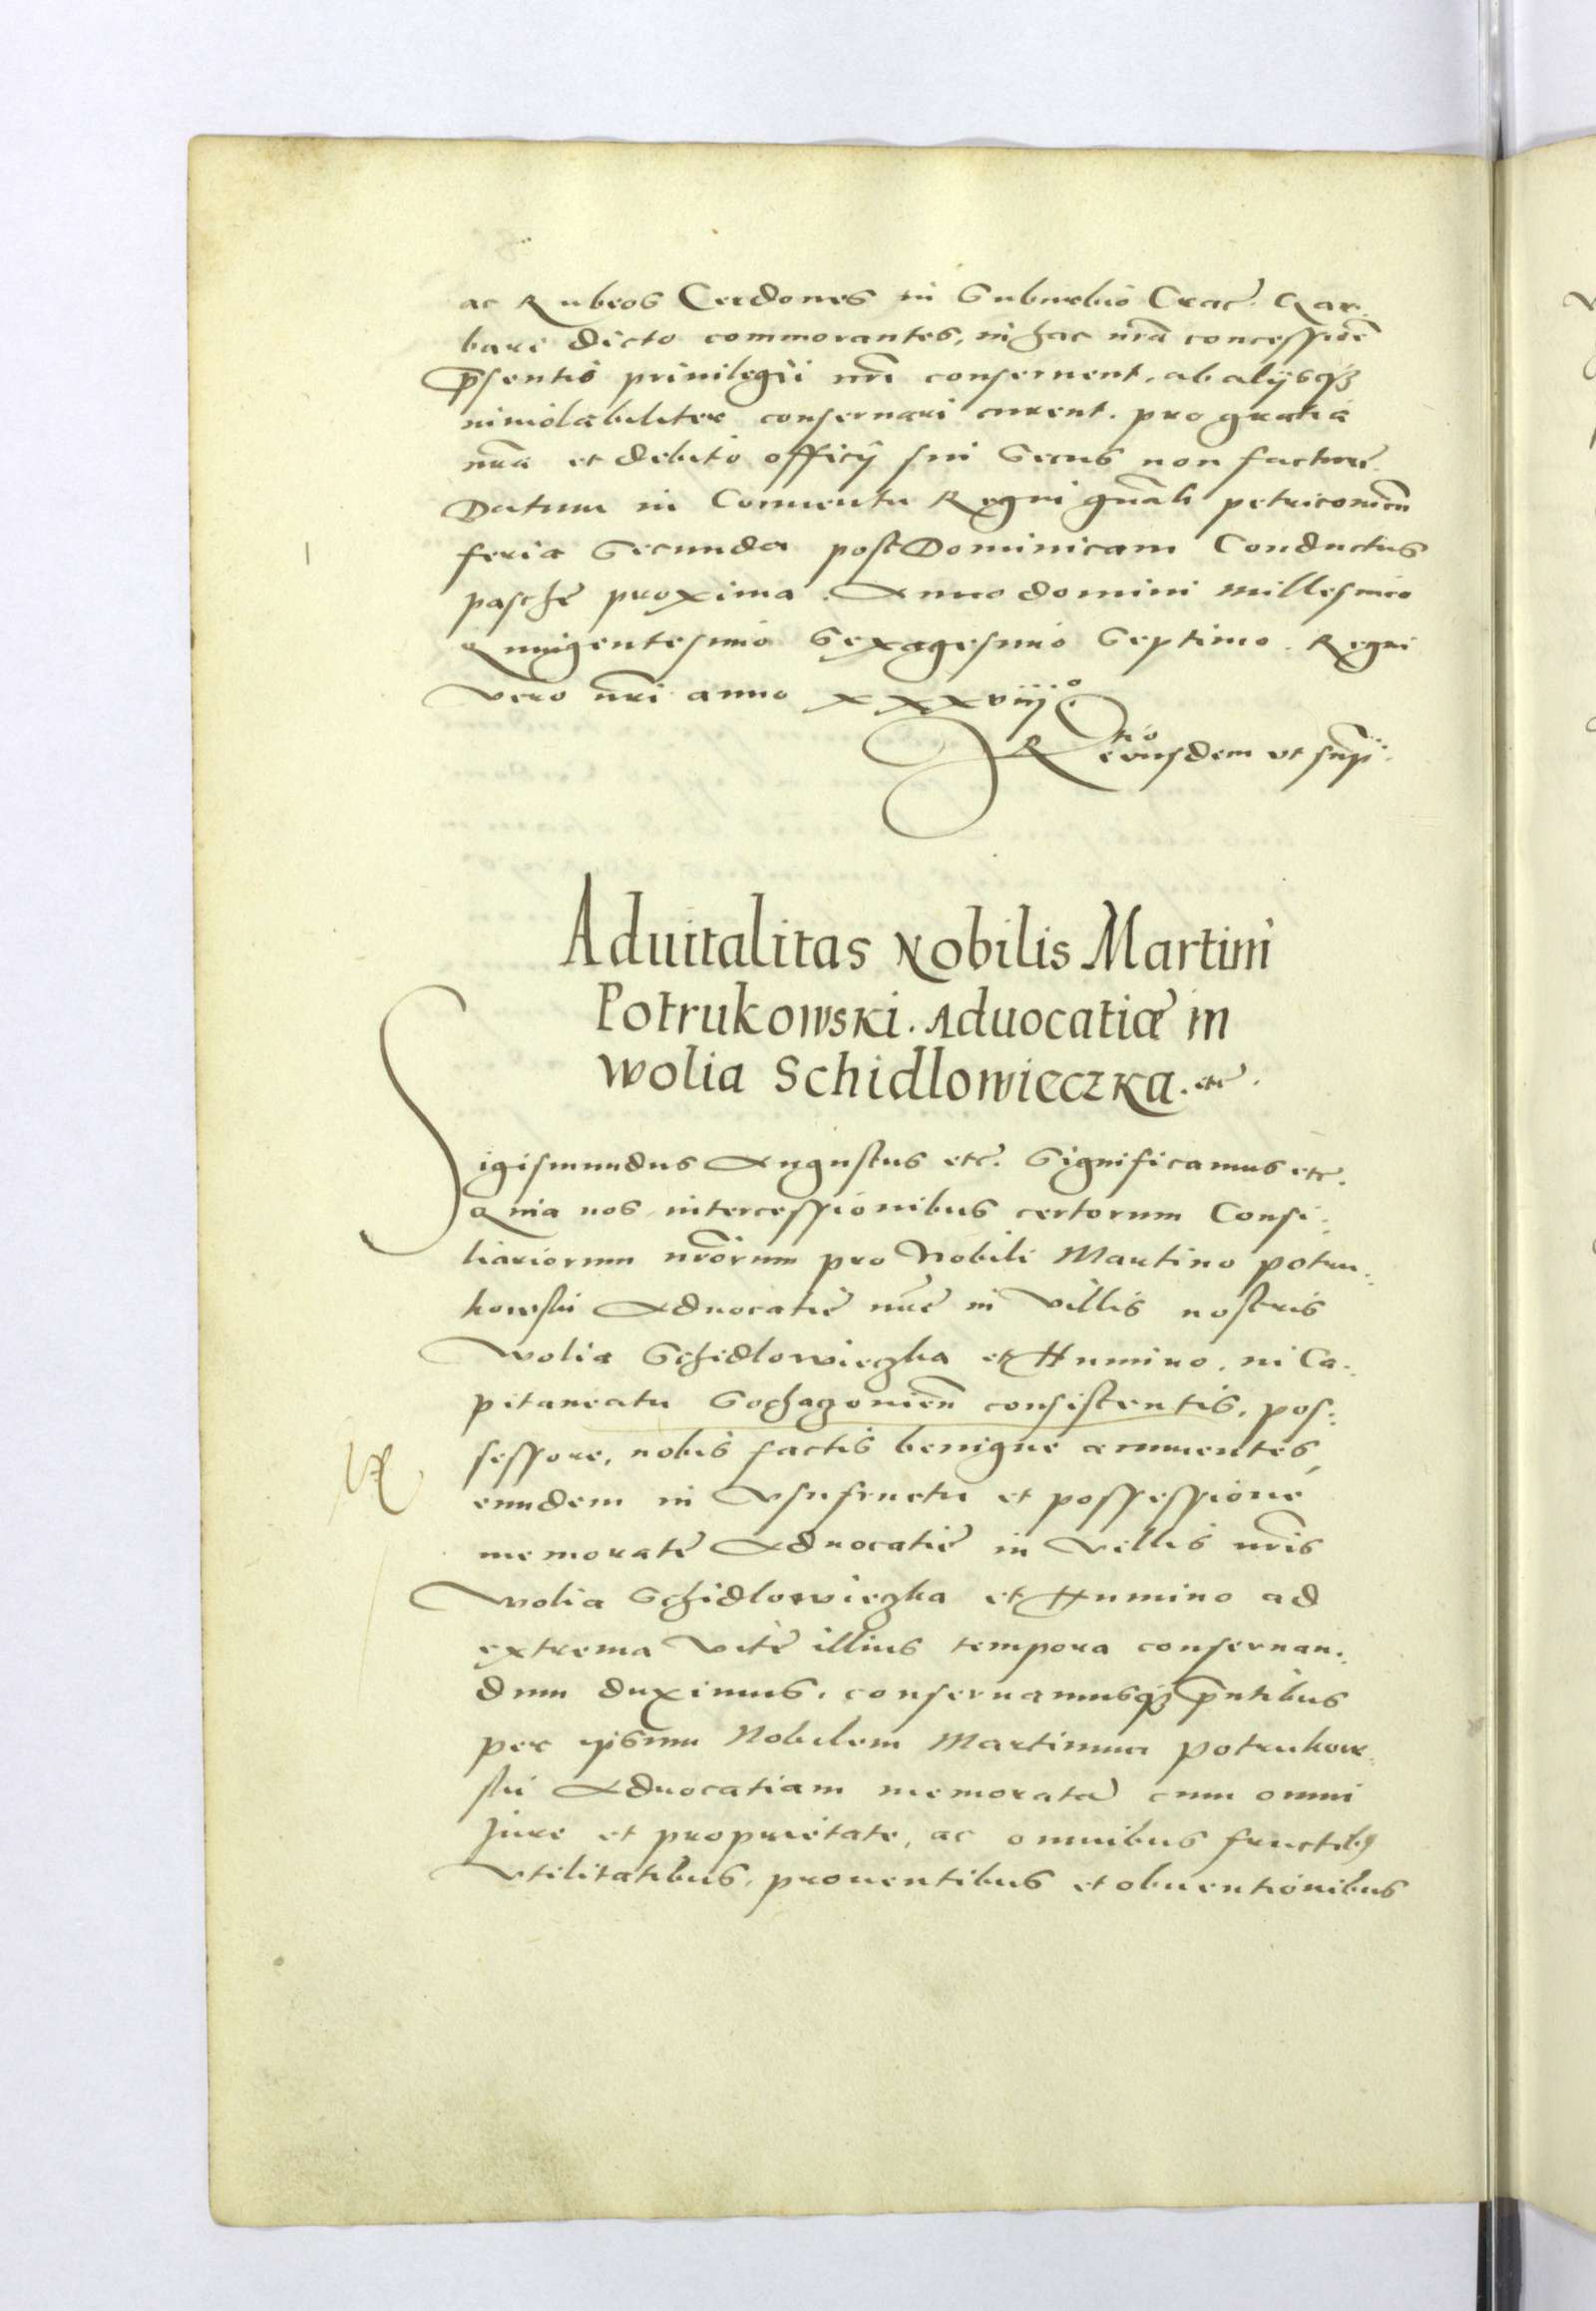 ac Rubeos Cerdones in Suburbio Crac̃. Gar:
bari dicto commorantes, in hac nr̃a concessiõe
p̃sentis priuilegii nr̃i conseruent, ab alijsq3
inuiolabiliter conseruari curent. pro gratia
nr̃a et debito officij sui Secus non facture.
Datum in Conuentu Regni gñali petricouieñ
feria Secunda post Dominicam Conductus
paschę proxima. Anno domini millesimo
Quingentesimo Sexagesimo Septimo. Regni
vero nr̃i anno xxxviijº.
Rtio eiusdem vt sup̃.
Aduitalitas Nobilis Martini
Potrukowski. Aduocatiæ in
wolia Schidlowieczka. etc̃.
Sigismundus Augustus etc̃. Significamus etc̃.
Quia nos intercessionibus certorum Consi:
liariorum nr̃orum pro Nobili Martino potru:
kowski Aduocatię nr̃ę in Villis nostris
wolia Schidlowieczka et Humino, in Ca:
pitaneatu Sochaczouieñ consistentis, pos:
sessore, nobis factis benigne annuentes,
eundem in Vsufructu et possessione
memoratę Aduocatię in Villis nr̃is
wolia Schidlowieczka et Humino ad
extrema vitę illius tempora conseruan:
dum duximus, conseruamusq3 p̃ntibus
per ipsum Nobilem Martinum potrukow:
ski Aduocatiam memoratã cum omni
Jure et proprietate, ac omnibus fructib9
Vtilitatibus, prouentibus et obuentionibus